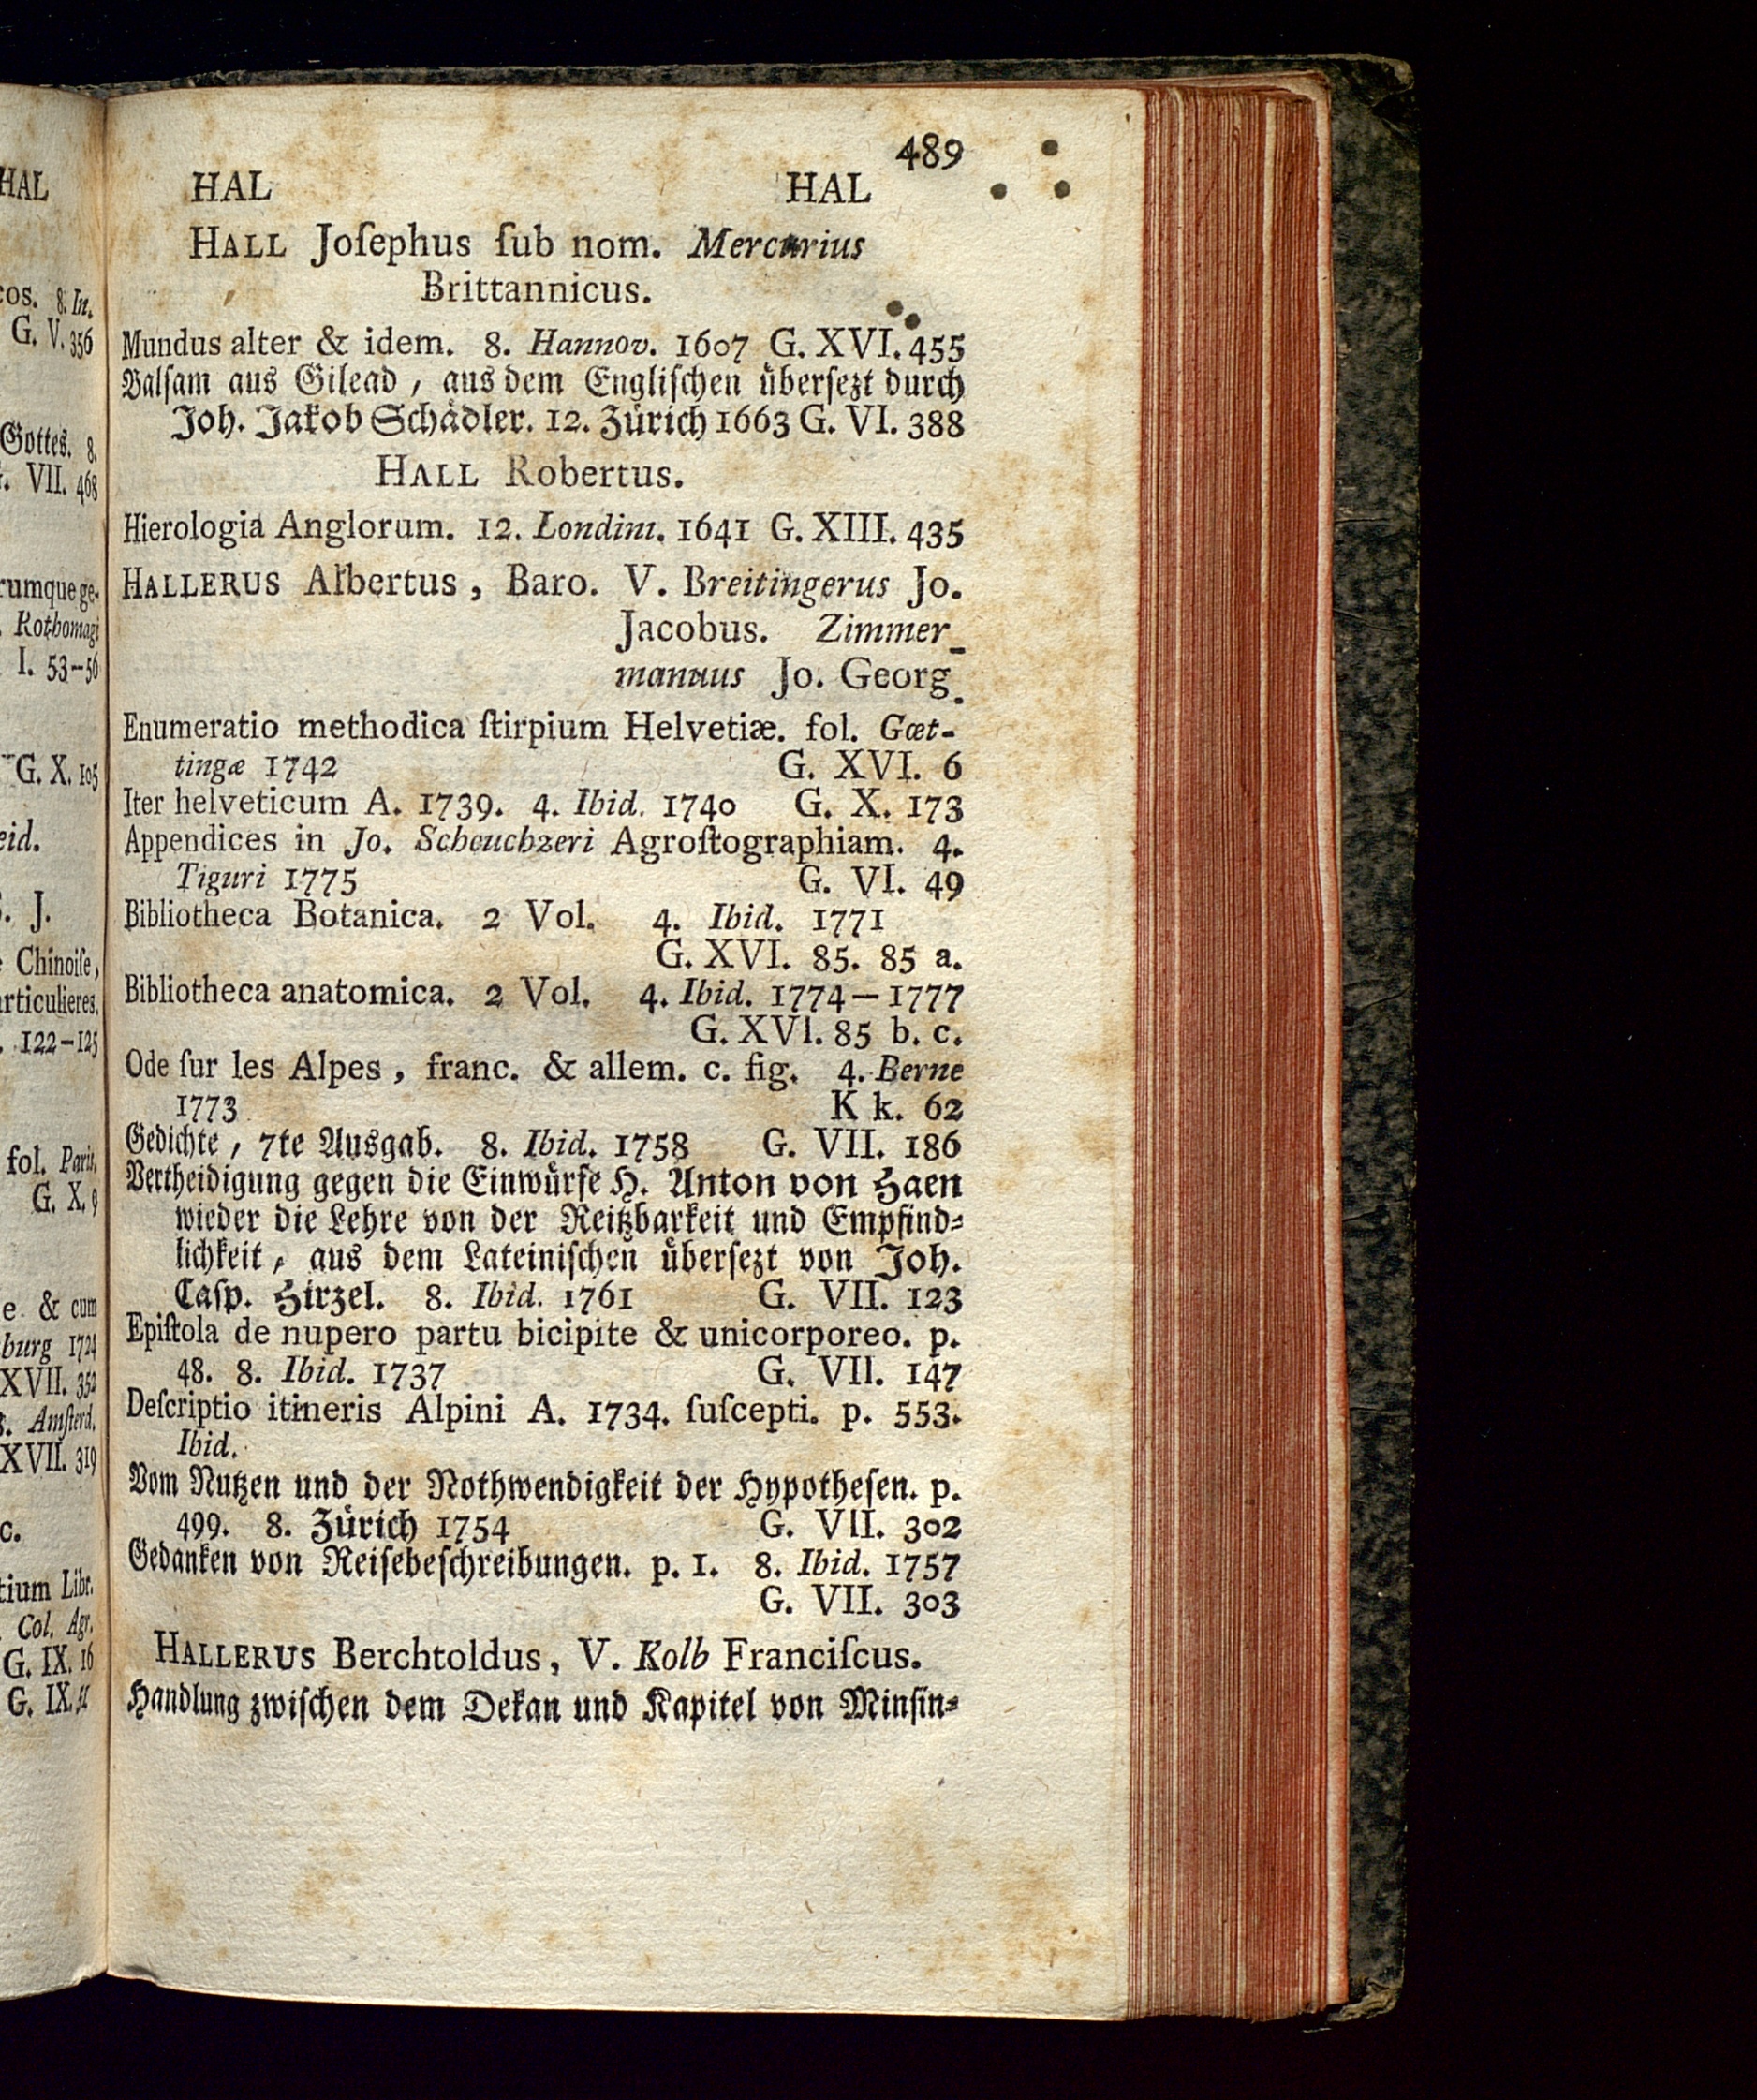 HAL
cos. 8. In.
G. V. 356
Gottes. 8.
G. VII. 468
rumque ge-
. Rothomagi
I. 53-56
G. X. 105
eid.
S. J.
e Chinoiſe,
articulieres.
. 122-125
fol. Paris.
G. X. 9
e & cum
burg 1724
XVII. 352
s. Amſterd.
XVII. 319
c.
tium Libr.
Col. Agr.
G. IX. 16
G. IX.
489
HAL HAL
HALL Joſephus ſub nom. Mercurius
Brittannicus.
Mundus alter & idem. 8. Hannov. 1607 G. XVI. 455
Balſam aus Gilead, aus dem Engliſchen überſezt durch
Joh. Jakob Schädler. 12. Zürich 1663 G. VI. 388
HALL Robertus.
Hierologia Anglorum. 12. Londini. 1641 G. XIII. 435
HALLERUS Albertus, Baro. V. Breitingerus Jo.
Jacobus. Zimmer-
manuus Jo. Georg.
Enumeratio methodica ſtirpium Helvetiæ. fol. Gœt-
tingæ 1742 G. XVI. 6
Iter helveticum A. 1739. 4. Ibid. 1740 G. X. 173
Appendices in Jo. Scheuchzeri Agroſtographiam. 4.
Tiguri 1775 G. VI. 49
Bibliotheca Botanica. 2 Vol. 4. Ibid. 1771
G. XVI. 85. 85 a.
Bibliotheca anatomica. 2 Vol. 4. Ibid. 1774—1777
G. XVI. 85 b. c.
Ode ſur les Alpes, franc. & allem. c. fig. 4. Berne
1773 K k. 62
Gedichte, 7te Ausgab. 8. Ibid. 1758 G. VII. 186
Vertheidigung gegen die Einwürfe H. Anton von Haen
wieder die Lehre von der Reitzbarkeit und Empfind-
lichkeit, aus dem Lateiniſchen überſezt von Joh.
Caſp. Hirzel. 8. Ibid. 1761 G. VII. 123
Epiſtola de nupero partu bicipite & unicorporeo. p.
48. 8. Ibid. 1737 G. VII. 147
Deſcriptio itineris Alpini A. 1734. ſuſcepti. p. 553.
Ibid.
Vom Nutzen und der Nothwendigkeit der Hypotheſen. p.
499. 8. Zürich 1754 G. VII. 302
Gedanken von Reiſebeſchreibungen. p. 1. 8. Ibid. 1757
G. VII. 303
HALLERUS Berchtoldus, V. Kolb Franciſcus.
Handlung zwiſchen dem Dekan und Kapitel von Minſin-